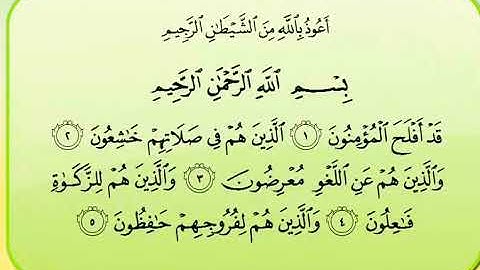 أَعُوذُ بِاللَّهِ مِنَ الشَّيْطَانِ الرَّجِيمِ
بِسْمِ اللَّهِ الرَّحْمَٰنِ الرَّحِيمِ
قَدْ أَفْلَحَ الْمُؤْمِنُونَ ١ الَّذِينَ هُمْ فِي صَلَاتِهِمْ خَاشِعُونَ ٢
وَالَّذِينَ هُمْ عَنِ اللَّغْوِ مُعْرِضُونَ ٣ وَالَّذِينَ هُمْ لِلزَّكَوٰةِ
فَاعِلُونَ ٤ وَالَّذِينَ هُمْ لِفُرُوجِهِمْ حَافِظُونَ ٥